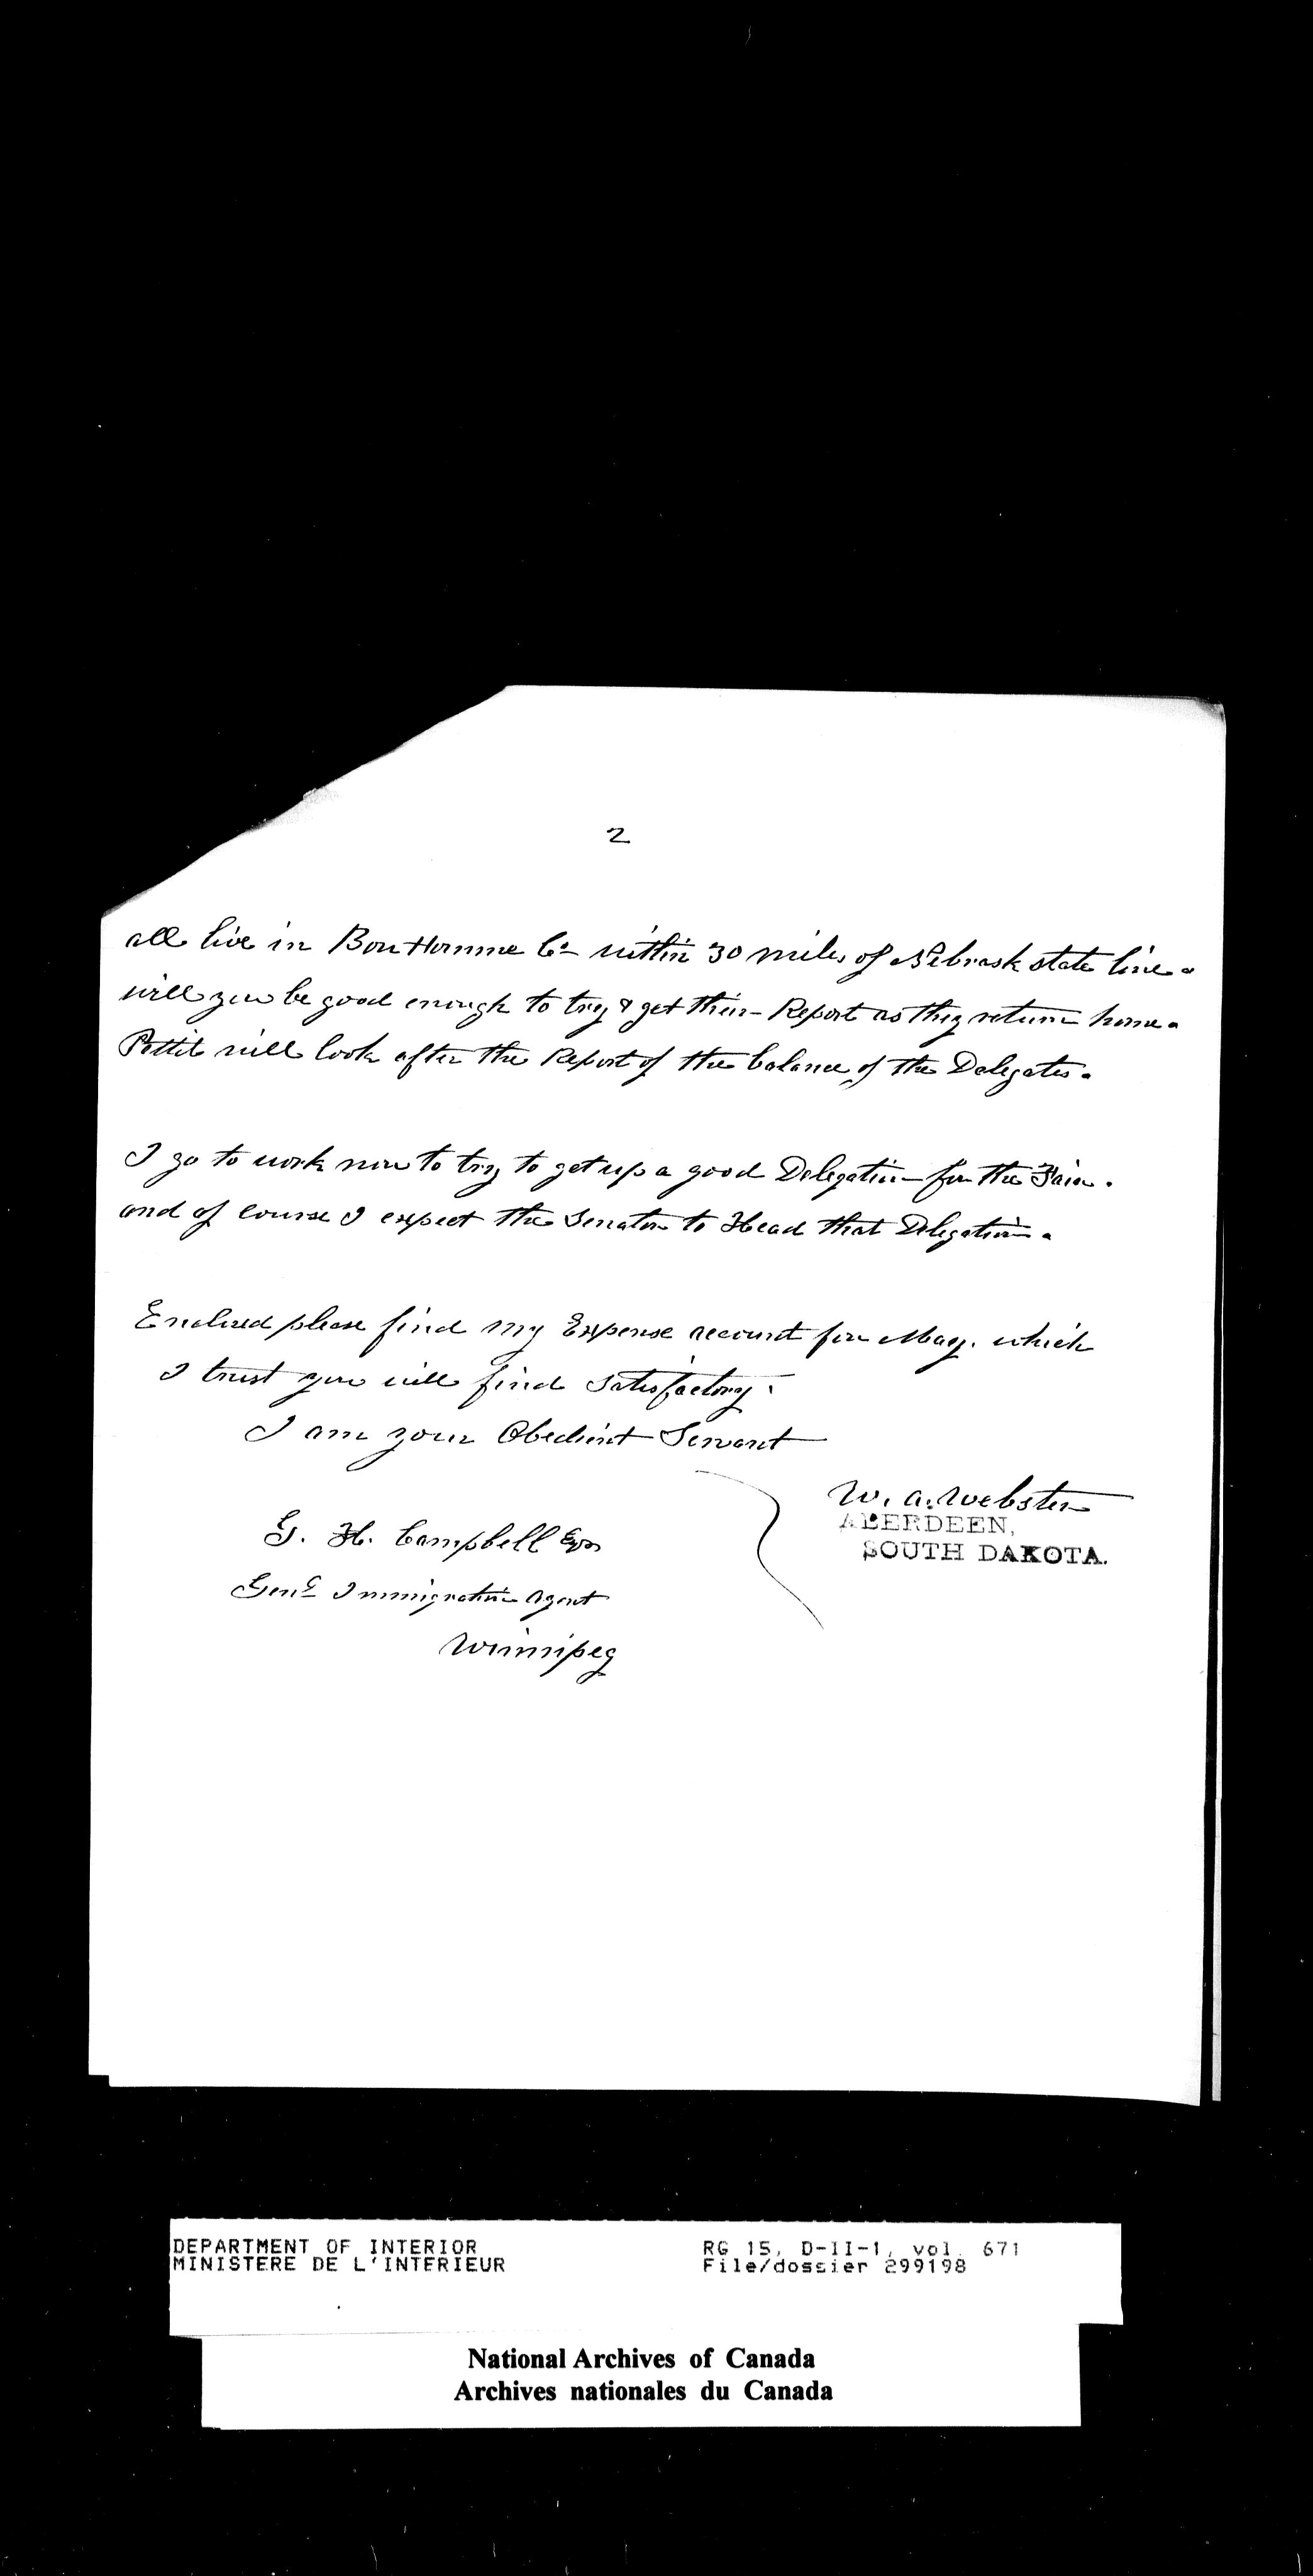 2
all live in Bon Homme Co within 30 miles of Nebrask state line.
will you be good enough to try & get their Report as they return home.
Pettit will look after the Report of the balance of the Delegates.
I go to work now to try to get up a good Delegation for the Fair.
and of course I expect the Senator to Head that Delegation.
Enclosed please find my Expense account for May. which
I trust you will find satisfactory.
I am your Obedient Servant
W. A. Webster
ABERDEEN,
SOUTH DAKOTA.
G. H. Campbell Esq
Genl Immigration Agent
Winnipeg
DEPARTMENT OF INTERIOR
MINISTERE DE L'INTERIEUR
RG 15, D-II-1, vol. 671
File/dossier 299198
National Archives of Canada
Archives nationales du Canada